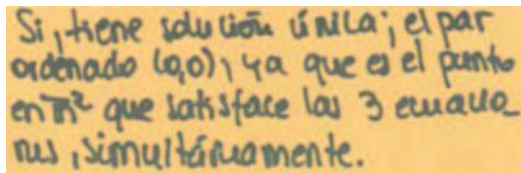 Si, tiene solución única; el par
ordenado (0,0), ya que es el punto
en ℝ² que satisface las 3 ecuacio
nes, simultáneamente.